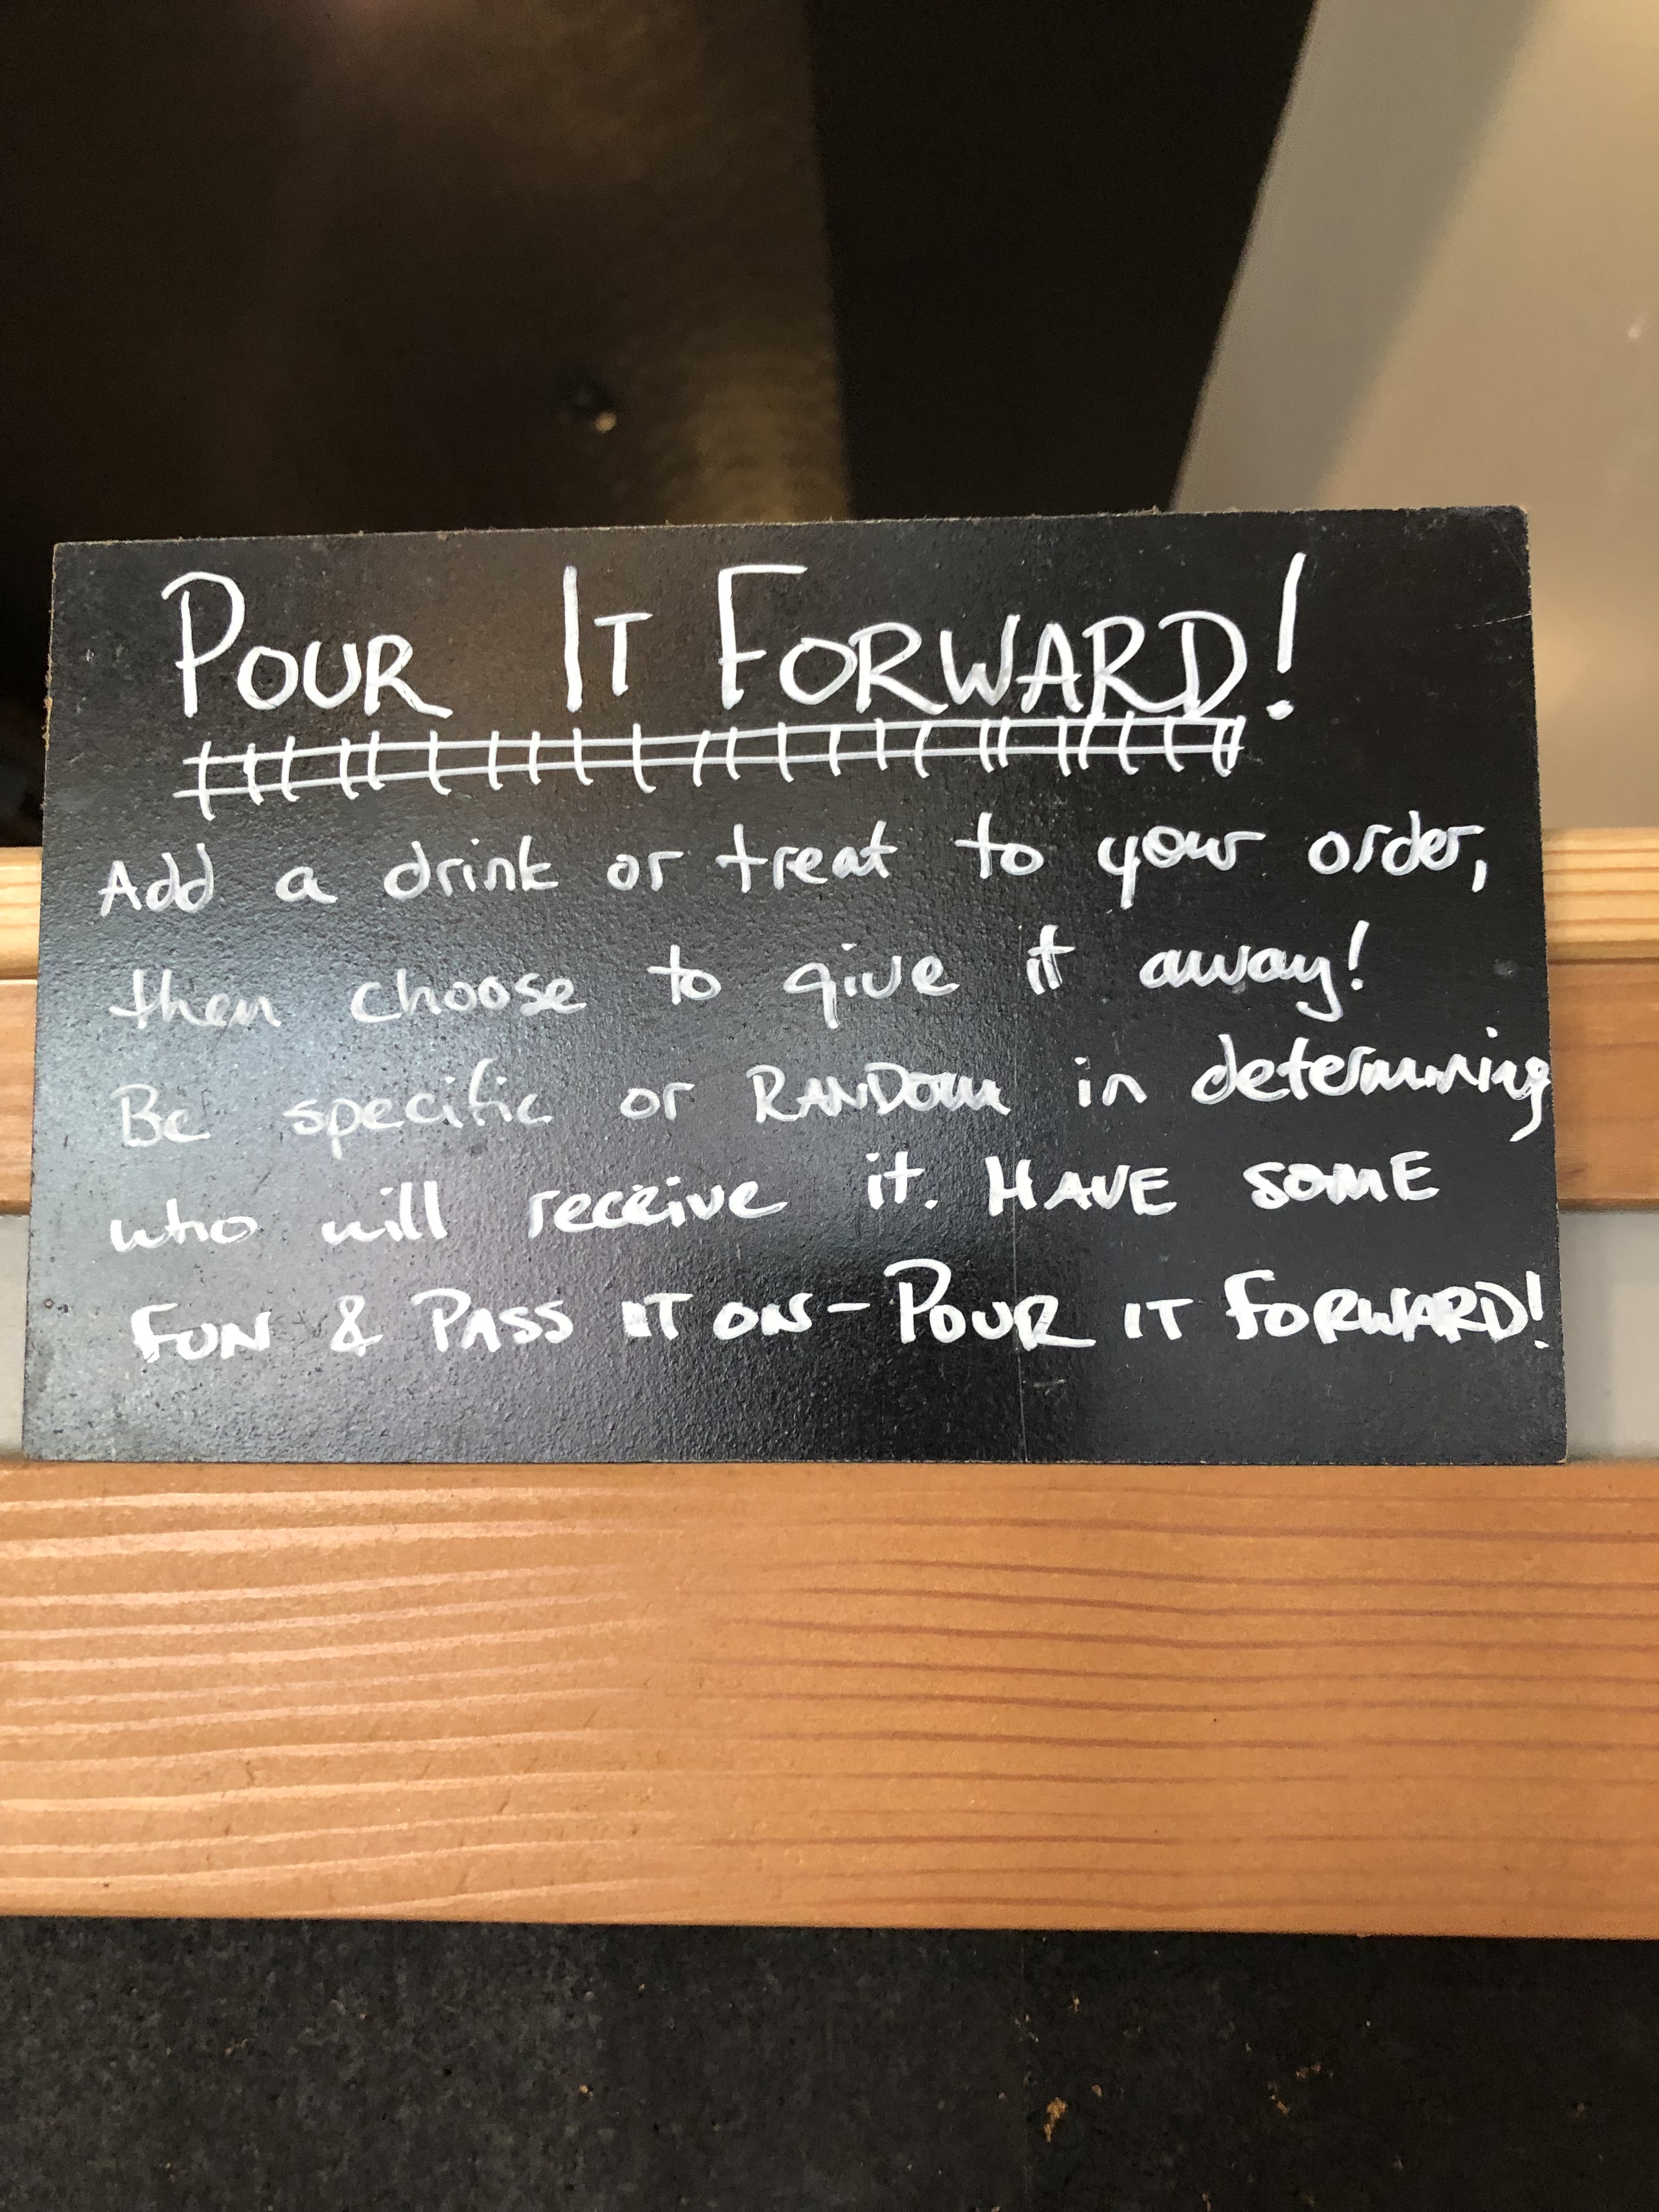 POUR IT FORWARD!
Add a drink or treat to your order,
then choose to give it away!
Be specific or RANDOM in determining
who will receive it. HAVE SOME
FUN & PASS IT ON - POUR IT FORWARD!